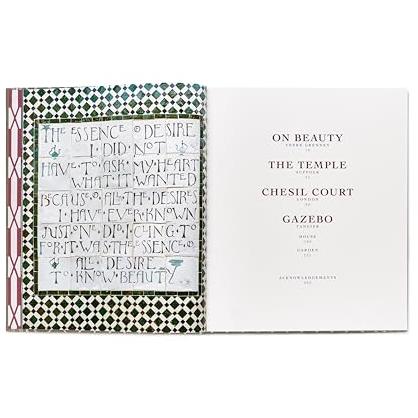 THE ESSENCE OF DESIRE
I DID NOT
HAVE TO ASK MY HEART
WHAT IT WANTED
BECAUSE OF ALL THE DESIRES
I HAVE EVER KNOWN
JUST ONE DID I CLING TO
FOR IT WAS THE ESSENCE OF
ALL DESIRE
TO KNOW BEAUTY
ON BEAUTY
THE TEMPLE
SUFFOLK
CHESIL COURT
LONDON
GAZEBO
TANGIER
HOUSE
GARDEN
ACKNOWLEDGEMENTS